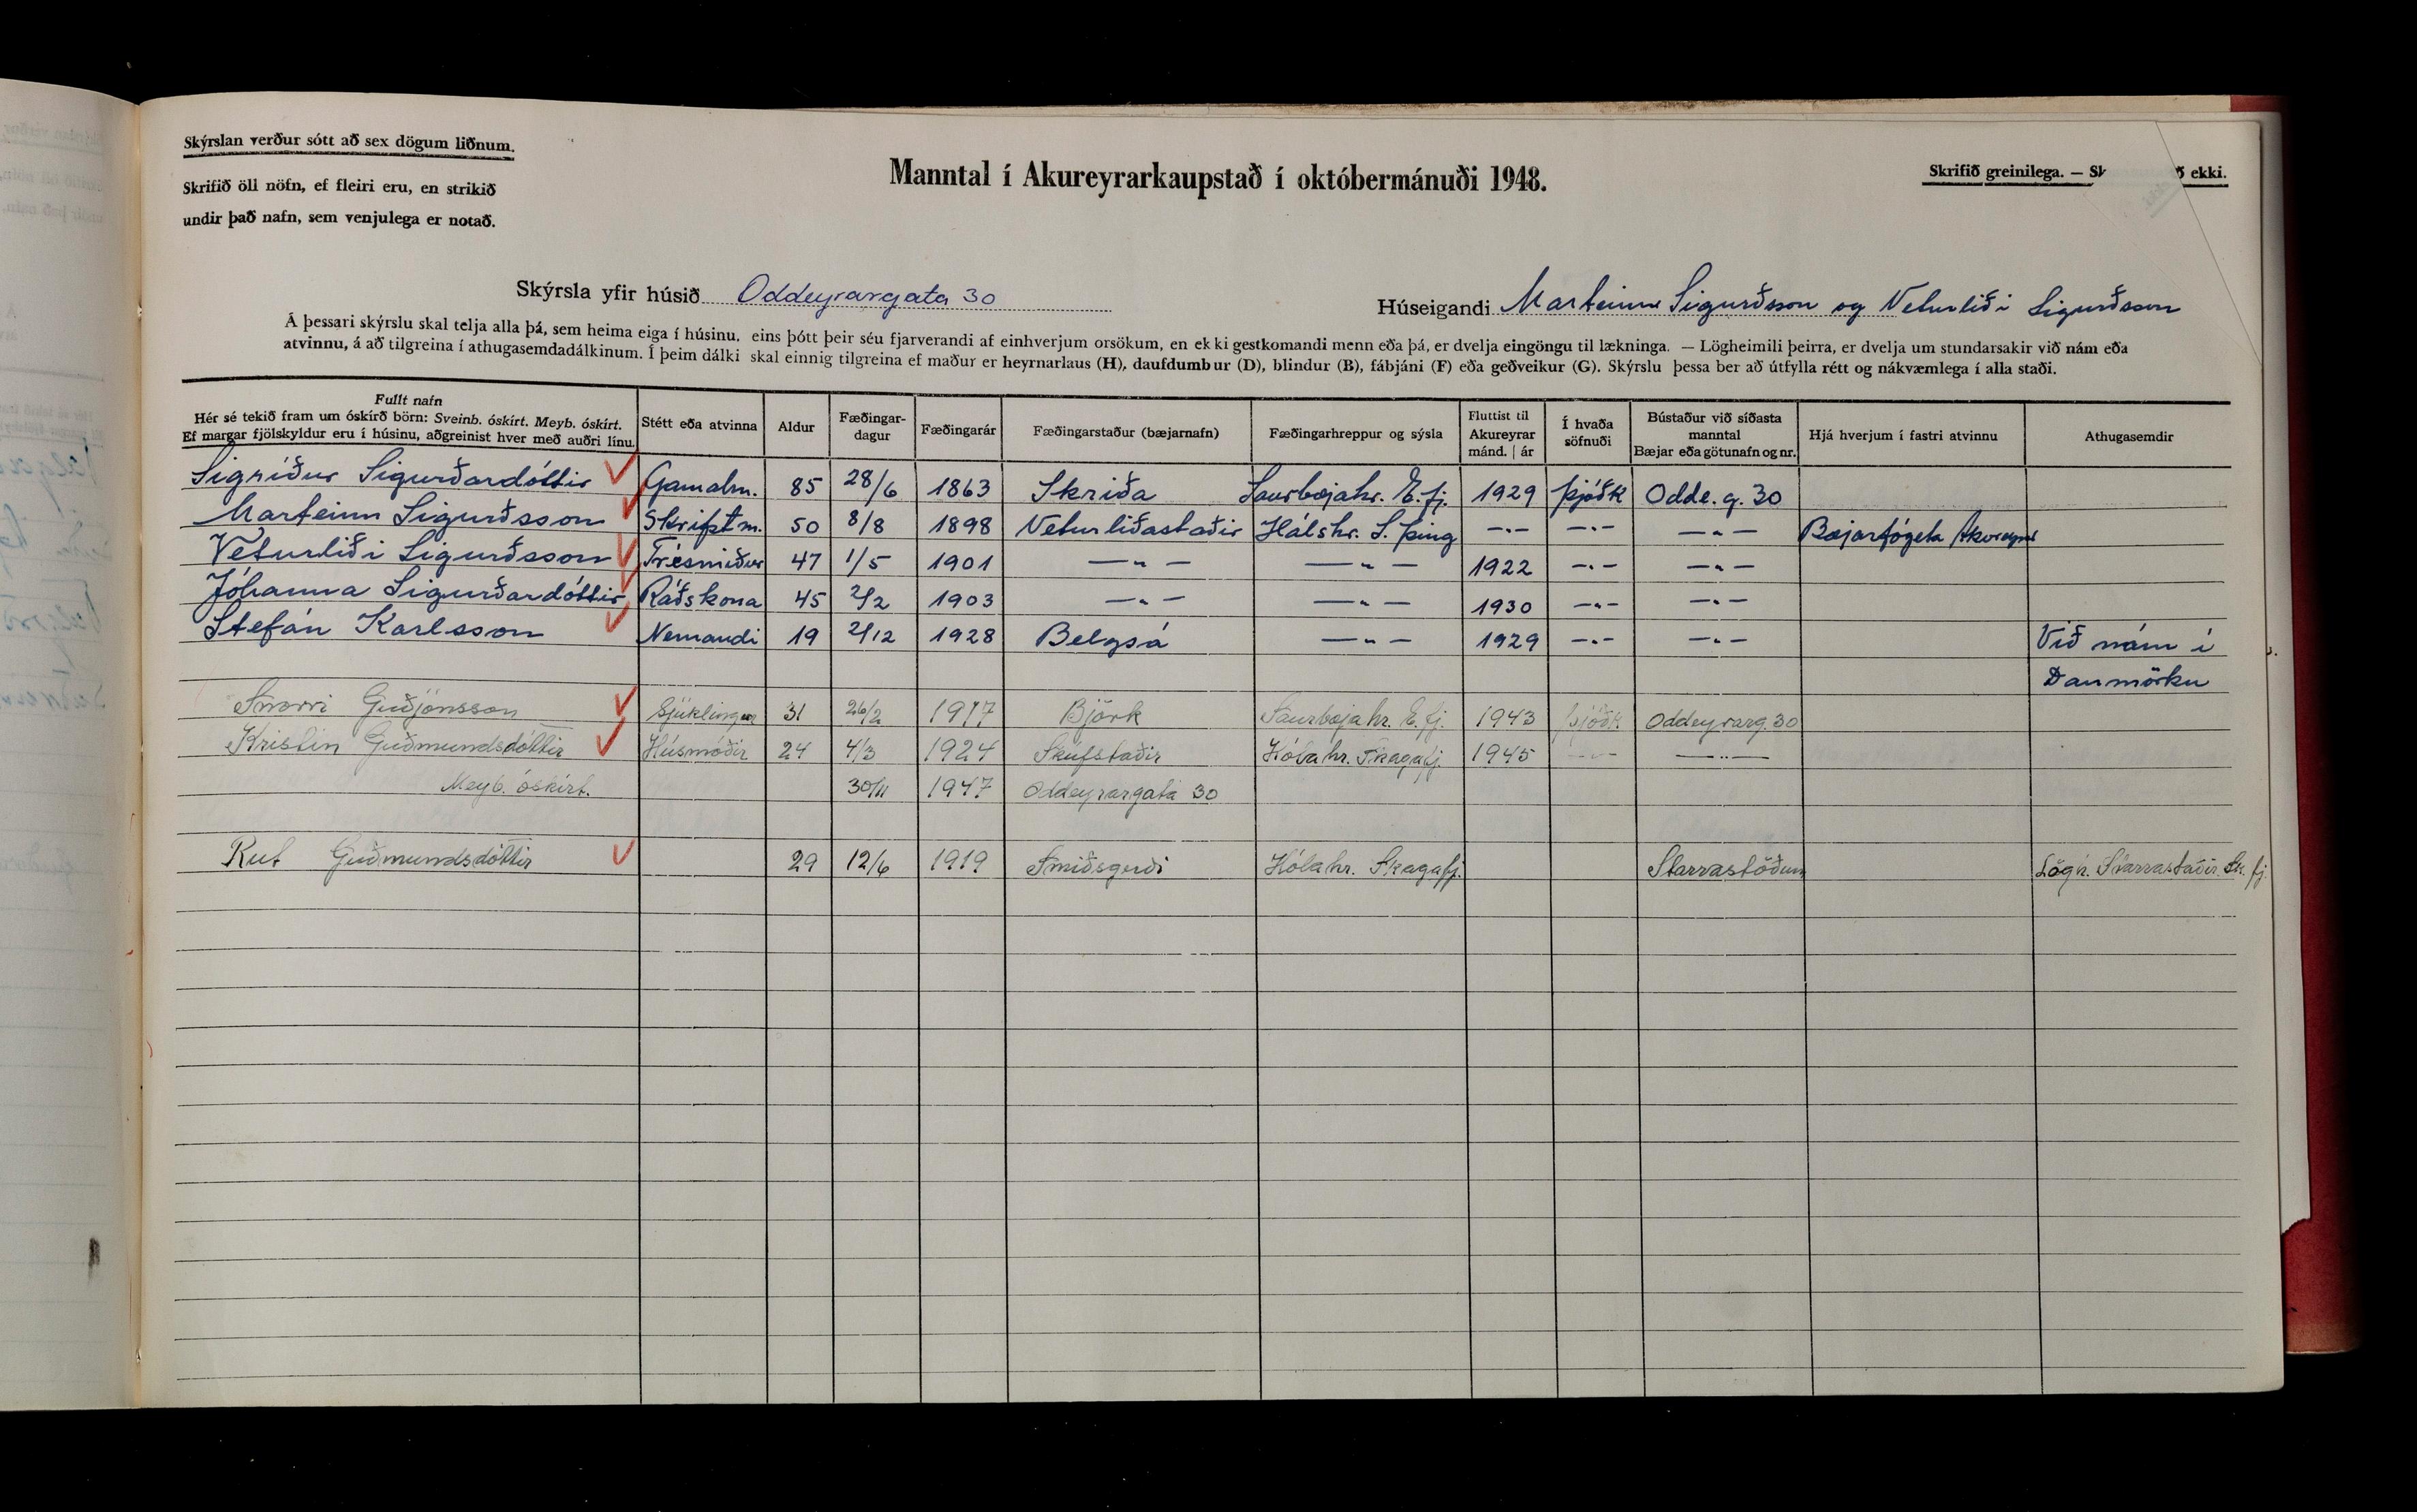 Skýrslan verður sótt að sex dögum liðnum.
Skrifið öll nöfn, ef fleiri eru, en strikið
undir það nafn, sem venjulega er notað.
Manntal í Akureyrarkaupstað í októbermánuði 1948.
Skrifið greinilega. — Sk ð ekki.
Skýrsla yfir húsið Oddeyrargata 30
Húseigandi Marteinn Sigurðsson og Veturliði Sigurðsson
Á þessari skýrslu skal telja alla þá, sem heima eiga í húsinu, eins þótt þeir séu fjarverandi af einhverjum orsökum, en ekki gestkomandi menn eða þá, er dvelja eingöngu til lækninga. — Lögheimili þeirra, er dvelja um stundarsakir við nám eða
atvinnu, á að tilgreina í athugasemdadálkinum. Í þeim dálki skal einnig tilgreina ef maður er heyrnarlaus (H), daufdumbur (D), blindur (B), fábjáni (F) eða geðveikur (G). Skýrslu þessa ber að útfylla rétt og nákvæmlega í alla staði.
Fullt nafn
Hér sé tekið fram um óskírð börn: Sveinb. óskírt. Meyb. óskírt.
Ef margar fjölskyldur eru í húsinu, aðgreinist hver með auðri línu.
Stétt eða atvinna
Aldur
Fæðingar-
dagur
Fæðingarár
Fæðingarstaður (bæjarnafn)
Fæðingarhreppur og sýsla
Fluttist til
Akureyrar
mánd. | ár
Í hvaða
söfnuði
Bústaður við síðasta
manntal
Bæjar eða götunafn og nr.
Hjá hverjum í fastri atvinnu
Athugasemdir
Sigríður Sigurðardóttir Gamalm. 85 28/6 1863 Skriða Saurbæjahr. E.fj. 1929 Þjóðk Odde.g. 30
Marteinn Sigurðsson Skrifstm. 50 8/8 1898 Veturliðastaðir Hálshr. S. Þing —"— —"— —"— Bæjarfógeta Akureyrar
Veturliði Sigurðsson Trésmiður 47 1/5 1901 —"— —"— 1922 —"— —"—
Jóhanna Sigurðardóttir Ráðskona 45 2/2 1903 —"— —"— 1930 —"— —"—
Stefán Karlsson Nemandi 19 2/12 1928 Belgsá —"— 1929 —"— —"— Við nám í
Danmörku
Snorri Guðjónsson Sjúklingur 31 26/2 1917 Björk Saurbæjahr. E.fj. 1943 Þjóðk Oddeyrarg. 30
Kristín Guðmundsdóttir Húsmóðir 24 4/3 1924 Skúfstaðir Hólahr. Skagafj. 1945 —"— —"—
Meyb. óskírt. 30/11 1947 Oddeyrargata 30
Rut Guðmundsdóttir 29 12/6 1919 Smiðsgerði Hólahr. Skagafj. Starrastöðum Lögh. Starrastaðir Sk.fj.